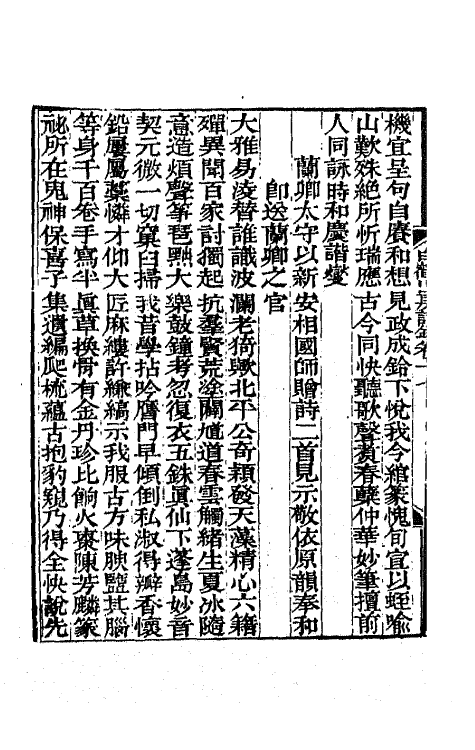 機宜呈句自賡和想見政成鈴下悅我今綰篆愧旬宜以蛭喻
山歎殊絕所忻瑞應古今同快聽歌聲賚春蘗仲華妙筆擅前
人同詠時和慶諧燮
蘭卿太守以新安相國師贈詩二首見示敬依原韻奉和
卽送蘭卿之官
大雅易淩替誰識波瀾老猗歟北平公奇穎發天藻精心六籍
殫異聞百家討獨起抗羣賢荒塗闢馗道春雲觸緒生夏冰隨
意造煩聲箏琶黜大樂鼓鐘考忽復衣五銖眞仙下蓬島妙音
契元微一切窠臼掃我昔學拈吟膺門早傾倒私淑得瓣香懷
鉛屢屬藁憐才仰大匠麻縷許縑縞示我服古方味腴鹽其腦
等身千百卷手寫半眞草換骨有金丹珍比餉火棗陳芳麟篆
祕所在鬼神保喜子集遺編爬梳蘊古抱豹窺乃得全快說先